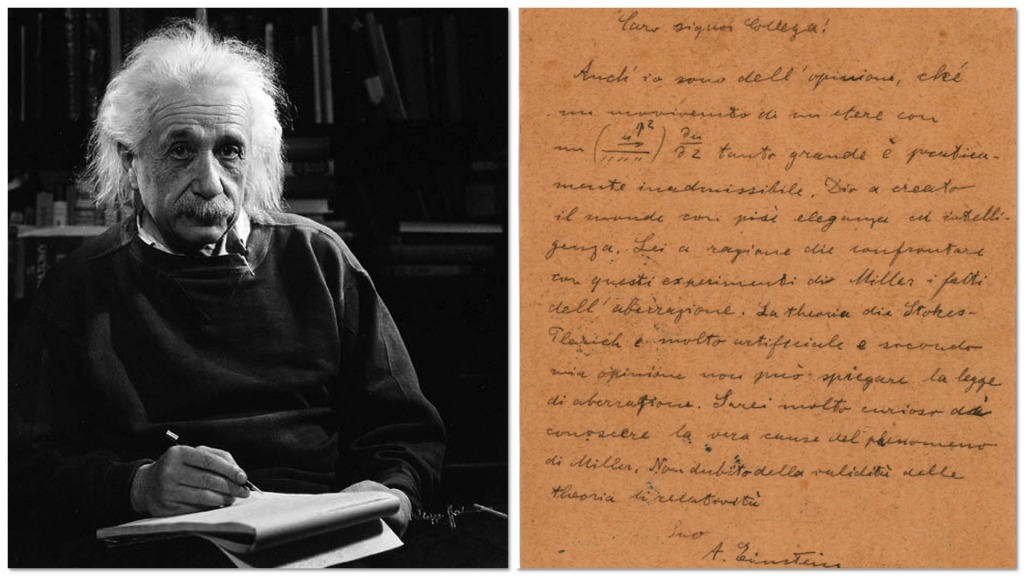 Caro signor Collega!
Anch' io sono dell' opinione, ché
un movimento di un etere con
un ( ) ∂u/∂z tanto grande è pratica-
mente inadmissibile. Dio a creato
il mondo con più eleganza ed intelli-
genza. Lei a ragione die confrontare
con questi experimenti die Miller i fatti
dell' aberrazione. La theoria die Stokes-
è molto artificiale e secondo
mia opinione non può spiegare la legge
di aberrazione. Sarei molto curioso
conoscere la vera cause del phenomeno
di Miller. Non dubito della validitù delle
theoria di relativitù
Suo
A. Einstein